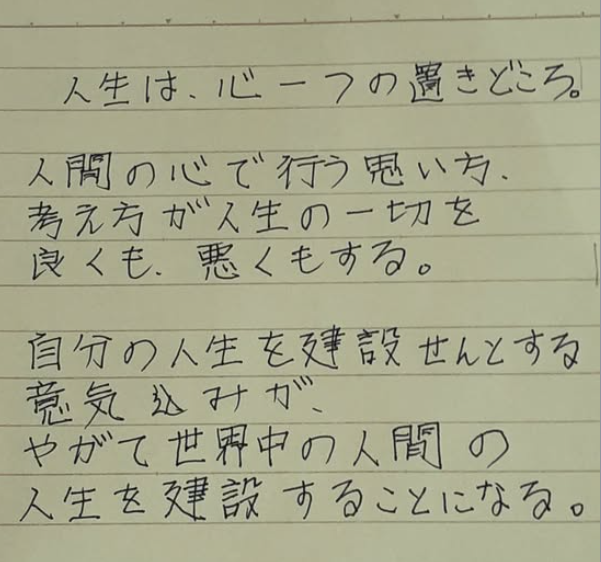 人生は、心一つの置きどころ。
人間の心で行う思い方、
考え方が人生の一切を
良くも、悪くもする。
自分の人生を建設せんとする
意気込みが、
やがて世界中の人間の
人生を建設することになる。